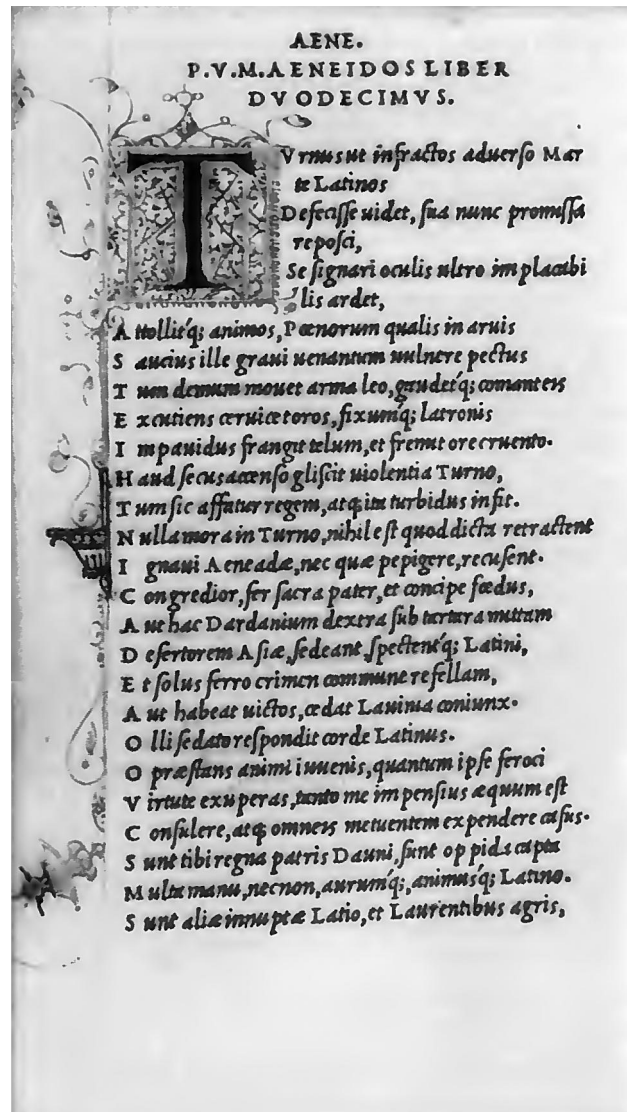 AENE.
P. V. M. AENEIDOS LIBER
DVODECIMVS.
TVrnus ut infractos aduerso Mar
te Latinos
Defecisse uidet, sua nunc promissa
reposci,
Se signari oculis ultro implacabi
lis ardet,
A ttollitq́; animos, Pœnorum qualis in aruis
S aucius ille graui uenantum uulnere pectus
T um demum mouet arma leo, gaudetq́; comanteis
E xcutiens ceruice toros, fixumq́; latronis
I mpauidus frangit telum, et fremit ore cruento.
H aud secus accenso gliscit uiolentia Turno,
T um sic affatur regem, atq; ita turbidus infit.
N ulla mora in Turno, nihil est quod dicta retractent
I gnaui Aeneadæ, nec quæ pepigere, recusent.
C ongredior, fer sacra pater, et concipe fœdus,
A ut hac Dardanium dextra sub tartara mittam
D esertorem Asiæ, sedeant, spectentq́; Latini,
E t solus ferro crimen commune refellam,
A ut habeat uictos, cedat Lauinia coniunx.
O lli sedato respondit corde Latinus.
O præstans animi iuuenis, quantum ipse feroci
V irtute exuperas, tanto me impensius æquum est
C onsulere, atq; omneis metuentem expendere casus.
S unt tibi regna patris Dauni, sunt oppida capta
M ulta manu, necnon, aurumq́;, animusq́; Latino.
S unt aliæ innuptæ Latio, et Laurentibus agris,